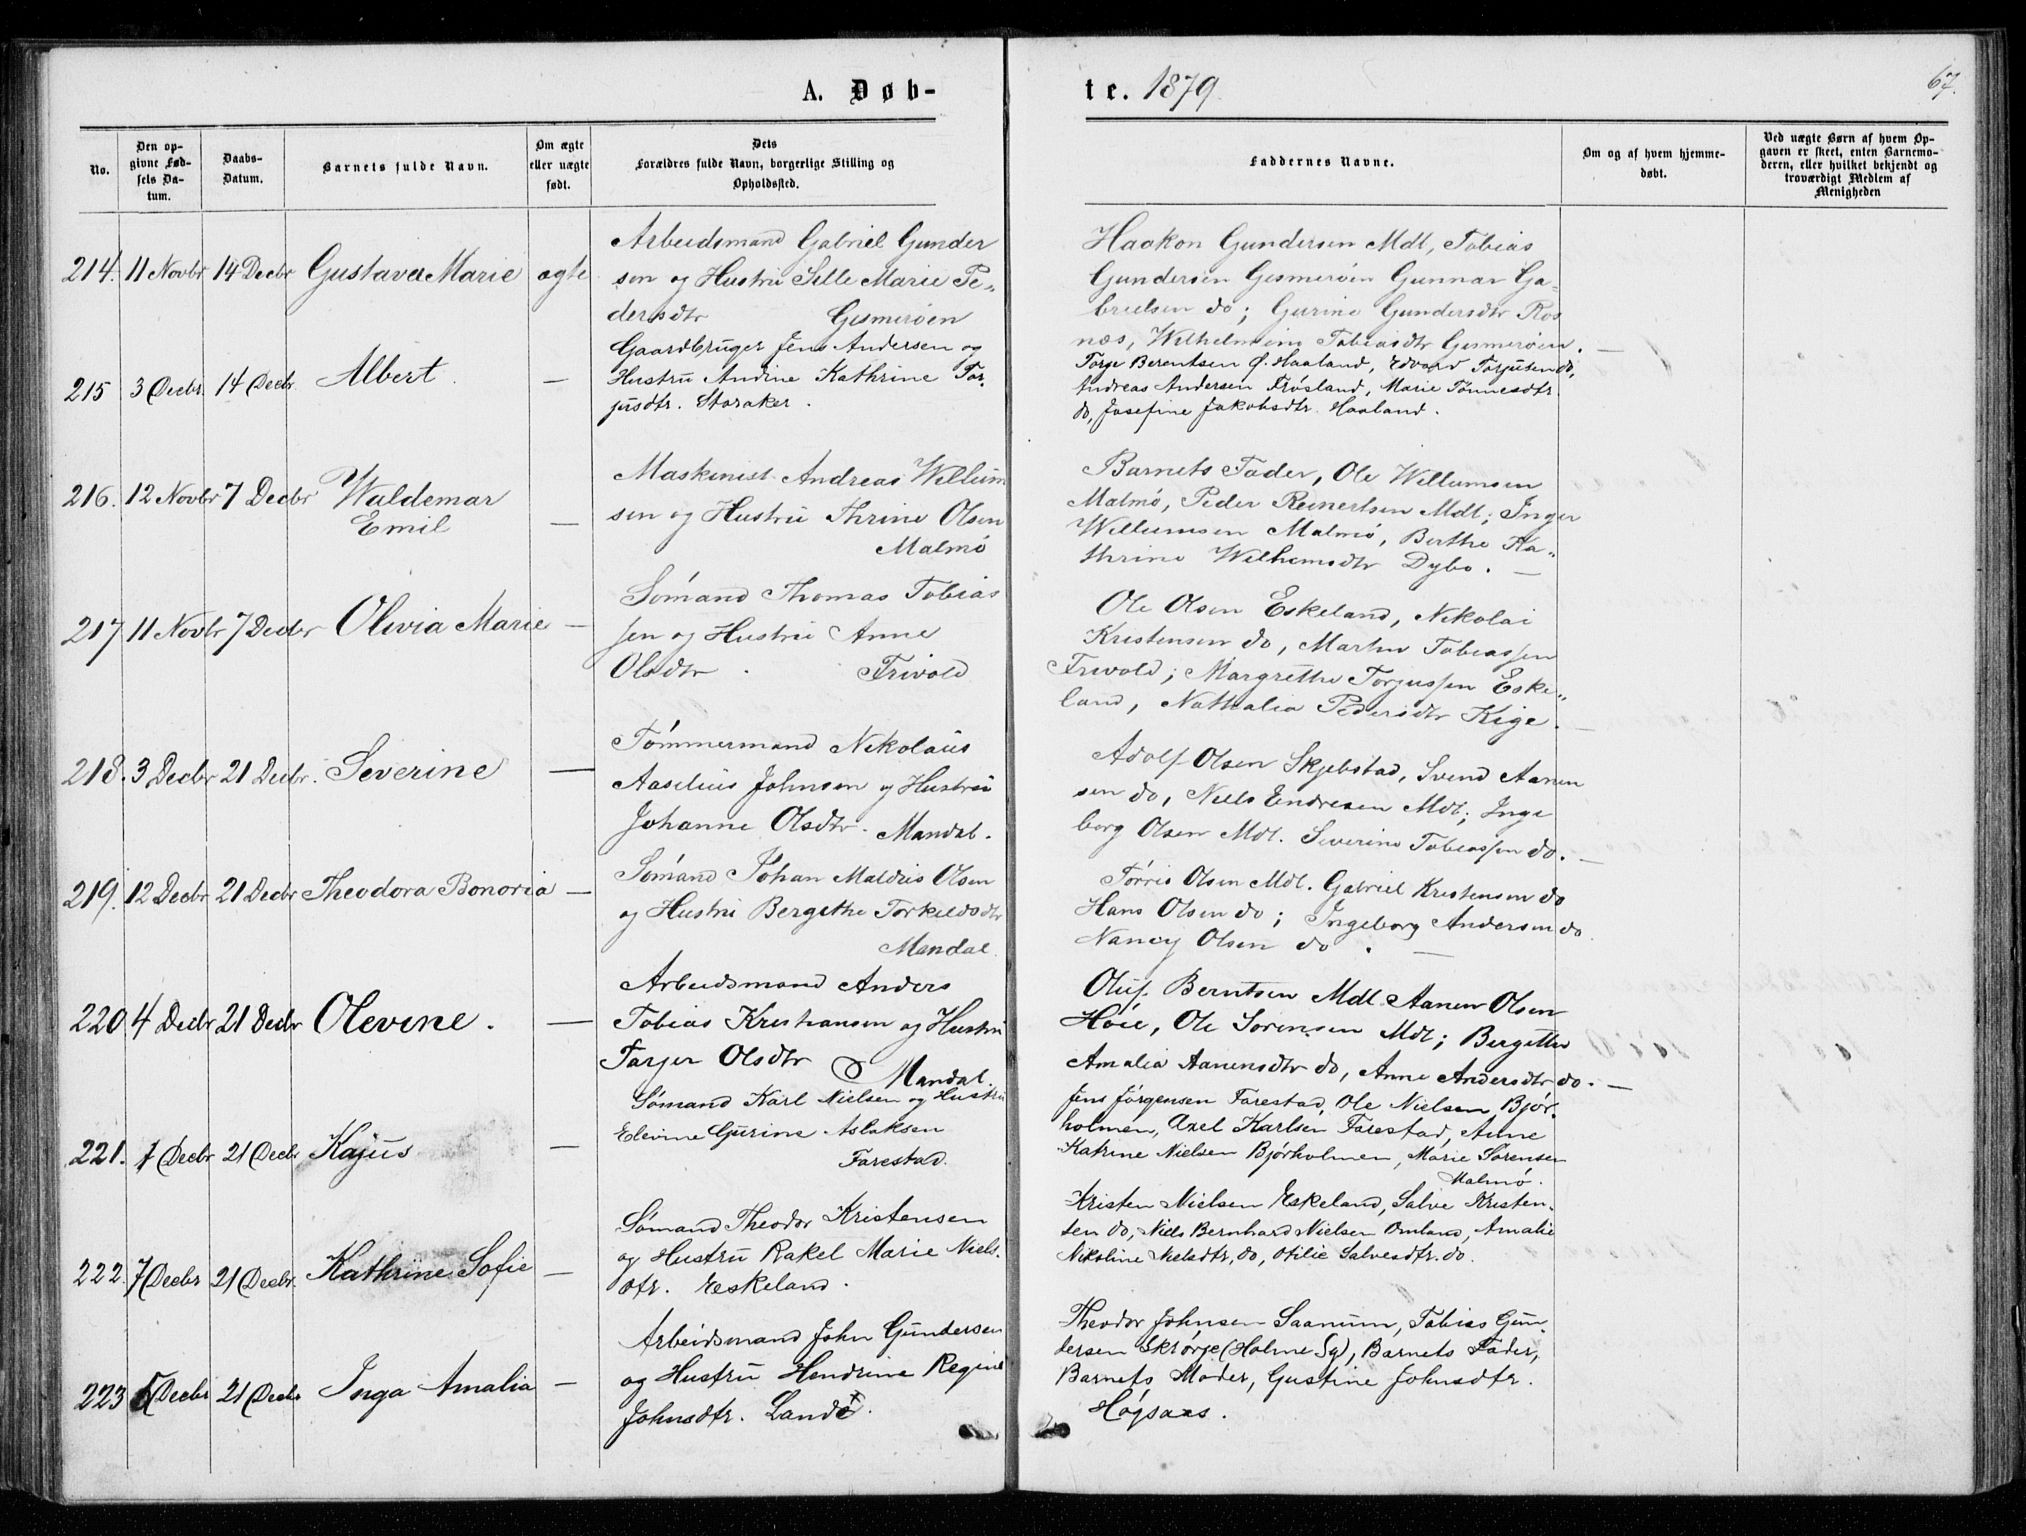 A. Døb-
te. 1879
67.
No.
Den op-
givne Fød-
sels Da-
tum.
Daabs-
Datum.
Barnets fulde Navn.
Om ægte
eller uægte
født.
Dets
Forældres fulde Navn, borgerlige Stilling og
Opholdssted.
Faddernes Navne.
Om og af hvem hjemme-
døbt.
Ved uægte Børn af hvem Op-
gaven er skeet, enten Barnemo-
deren, eller hvilket bekjendt og
troværdigt Medlem af
Menigheden
214. 11 Novbr 14 Decbr Gustava Marie ægte
Arbeidsmand Gabriel Gunder
sen og Hustru Sille Marie Pe-
dersdtr Gismerøen
Haakon Gundersen Mdl, Tobias
Gundersen Gismerøen Gunnar Ga-
brielsen do; Gurine Gundersdtr Ros
næs, Wilhelmine Tobiasdtr Gismerøen.
215 3 Decbr. 14 Decbr. Albert. —
Gaardbruger Jens Andersen og
Hustru Andine Kathrine Tor-
jusdtr. Storaker.
Torge Berentsen Ø. Haaland, Edvard Torjusen do,
Andreas Andersen Frøsland, Marie Tønnesdtr.
do, Josefine Jakobsdtr. Haaland.
216. 12 Novbr 7 Decbr Waldemar
Emil —
Maskinist Andreas Willum
sen og Hustru Thrine Olsen
Malmø
Barnets Fader, Ole Willumsen
Malmø, Peder Reinertsen Mdl; Inger
Willumsen Malmø, Berthe Ka-
thrine Wilhemsdtr Dybo. —
217 11 Novbr 7 Decbr Olivia Marie —
Sømand Thomas Tobias
sen og Hustru Anne
Olsdtr. Frivold
Ole Olsen Eskeland, Nikolai
Kristensen do, Martin Tobiassen
Frivold; Margrethe Torjussen Eske-
land, Nathalia Pedersdtr Kige.
218. 3 Decbr 21 Decbr. Severine —
Tømmermand Nikolaus
Aaselius Johnsen og Hustru
Johanne Olsdtr. Mandal.
Adolf Olsen Skjebstad, Svend Aanen
sen do, Niels Endresen Mdl; Inge
borg Olsen Mdl. Severine Tobiassen do. —
219. 12 Decbr 21 Decbr Theodora Bonoria —
Sømand Johan Maldris Olsen
og Hustru Bergithe Torkeldsdtr
Mandal.
Tørris Olsen Mdl. Gabriel Kristensen do
Hans Olsen do; Ingeborg Andersen do
Nancy Olsen do. —
220 4 Decbr 21 Decbr Olevine. —
Arbeidsmand Anders
Tobias Kristiansen og Hustru
Tarjer Olsdtr Mandal.
Oluf Berntsen Mdl. Aanen Olsen
Høie, Ole Sørensen Mdl; Bergitte
Amalia Aanensdtr do, Anne Andersdtr do. —
221. 1 Decbr 21 Decbr Kajus —
Sømand Karl Nielsen og Hustru
Elevine Gurine Aslaksen
Farestad.
Jens Jørgensen Farestad, Ole Nielsen Bjør-
holmen, Axel Karlsen Farestad, Anne
Katrine Nielsen Bjørholmen, Marie Sørensen
Malmø.
222 7 Decbr 21 Decbr. Kathrine Sofie —
Sømand Theodor Kristensen
og Hustru Rakel Marie Niels-
dtr. Eskeland.
Kristen Nielsen Eskeland, Salve Kristen-
sen do, Niels Bernhard Nielsen Omland, Amalie
Nikoline Nielsdtr, do, Otilie Salvesdtr. do.
223 5 Decbr 21 Decbr Inga Amalia —
Arbeidsmand John Gundersen
og Hustru Hendrine Regine
Johnsdtr. Lande.
Theodor Johnsen Saanum, Tobias Gun-
dersen Skrøje (Holme Sg), Barnets Fader,
Barnets Moder, Gustine Johnsdtr.
Høgsaas.